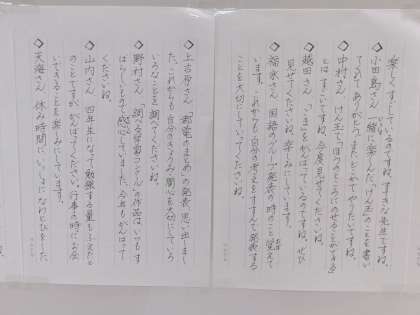 楽しく手しているのですね。すてきな先生ですね。
◇小田島さん 「一緒に楽んだ、けん玉」のことを書い
てくれてありがとう。またどこかでやりたいですね。
◇中村さん けん玉で「ぼうのところ」にのせることができる
とはすごいですね。今度見せてくださいね。
◇越田さん 「こま」をがんばっているのですね。ぜひ
見せてくださいね。楽しみにしていますね。
◇福永さん 国語のグループ発表の時のこと覚えて
います。これからも自分の考えをすすんで発表する
ことを大切にしていってくださいね。
◇上古布さん 「郵便のまとめ」の発表、思い出しまし
た。これからも自分のきょうみ・関心を大切にして、いろ
いろなことを調べてくださいね。
◇野村さん 「調べる学習コンクール」の作品は、いつもす
ばらしいもので感心していました。今年もがんばって
くださいね。
◇山内さん 四年生になって勉強する量もふえたと
のことですが、がんばってくださいね。行事の時にお会
いできることを楽しみにしています。
◇天海さん 休み時間に、いっしょになわとびをした